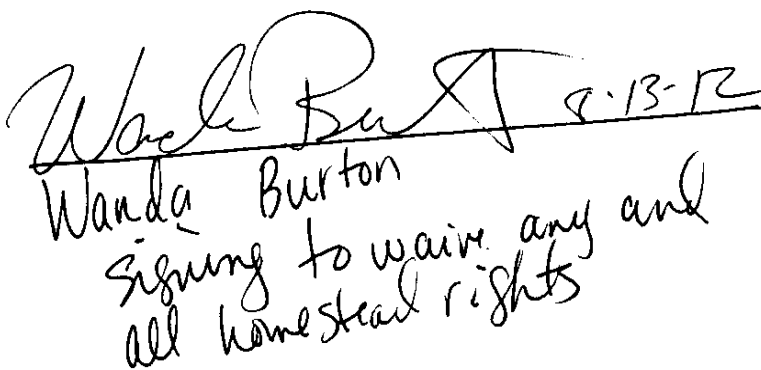 Wanda Burton 8-13-12
Wanda Burton
signing to waive any and
all homestead rights